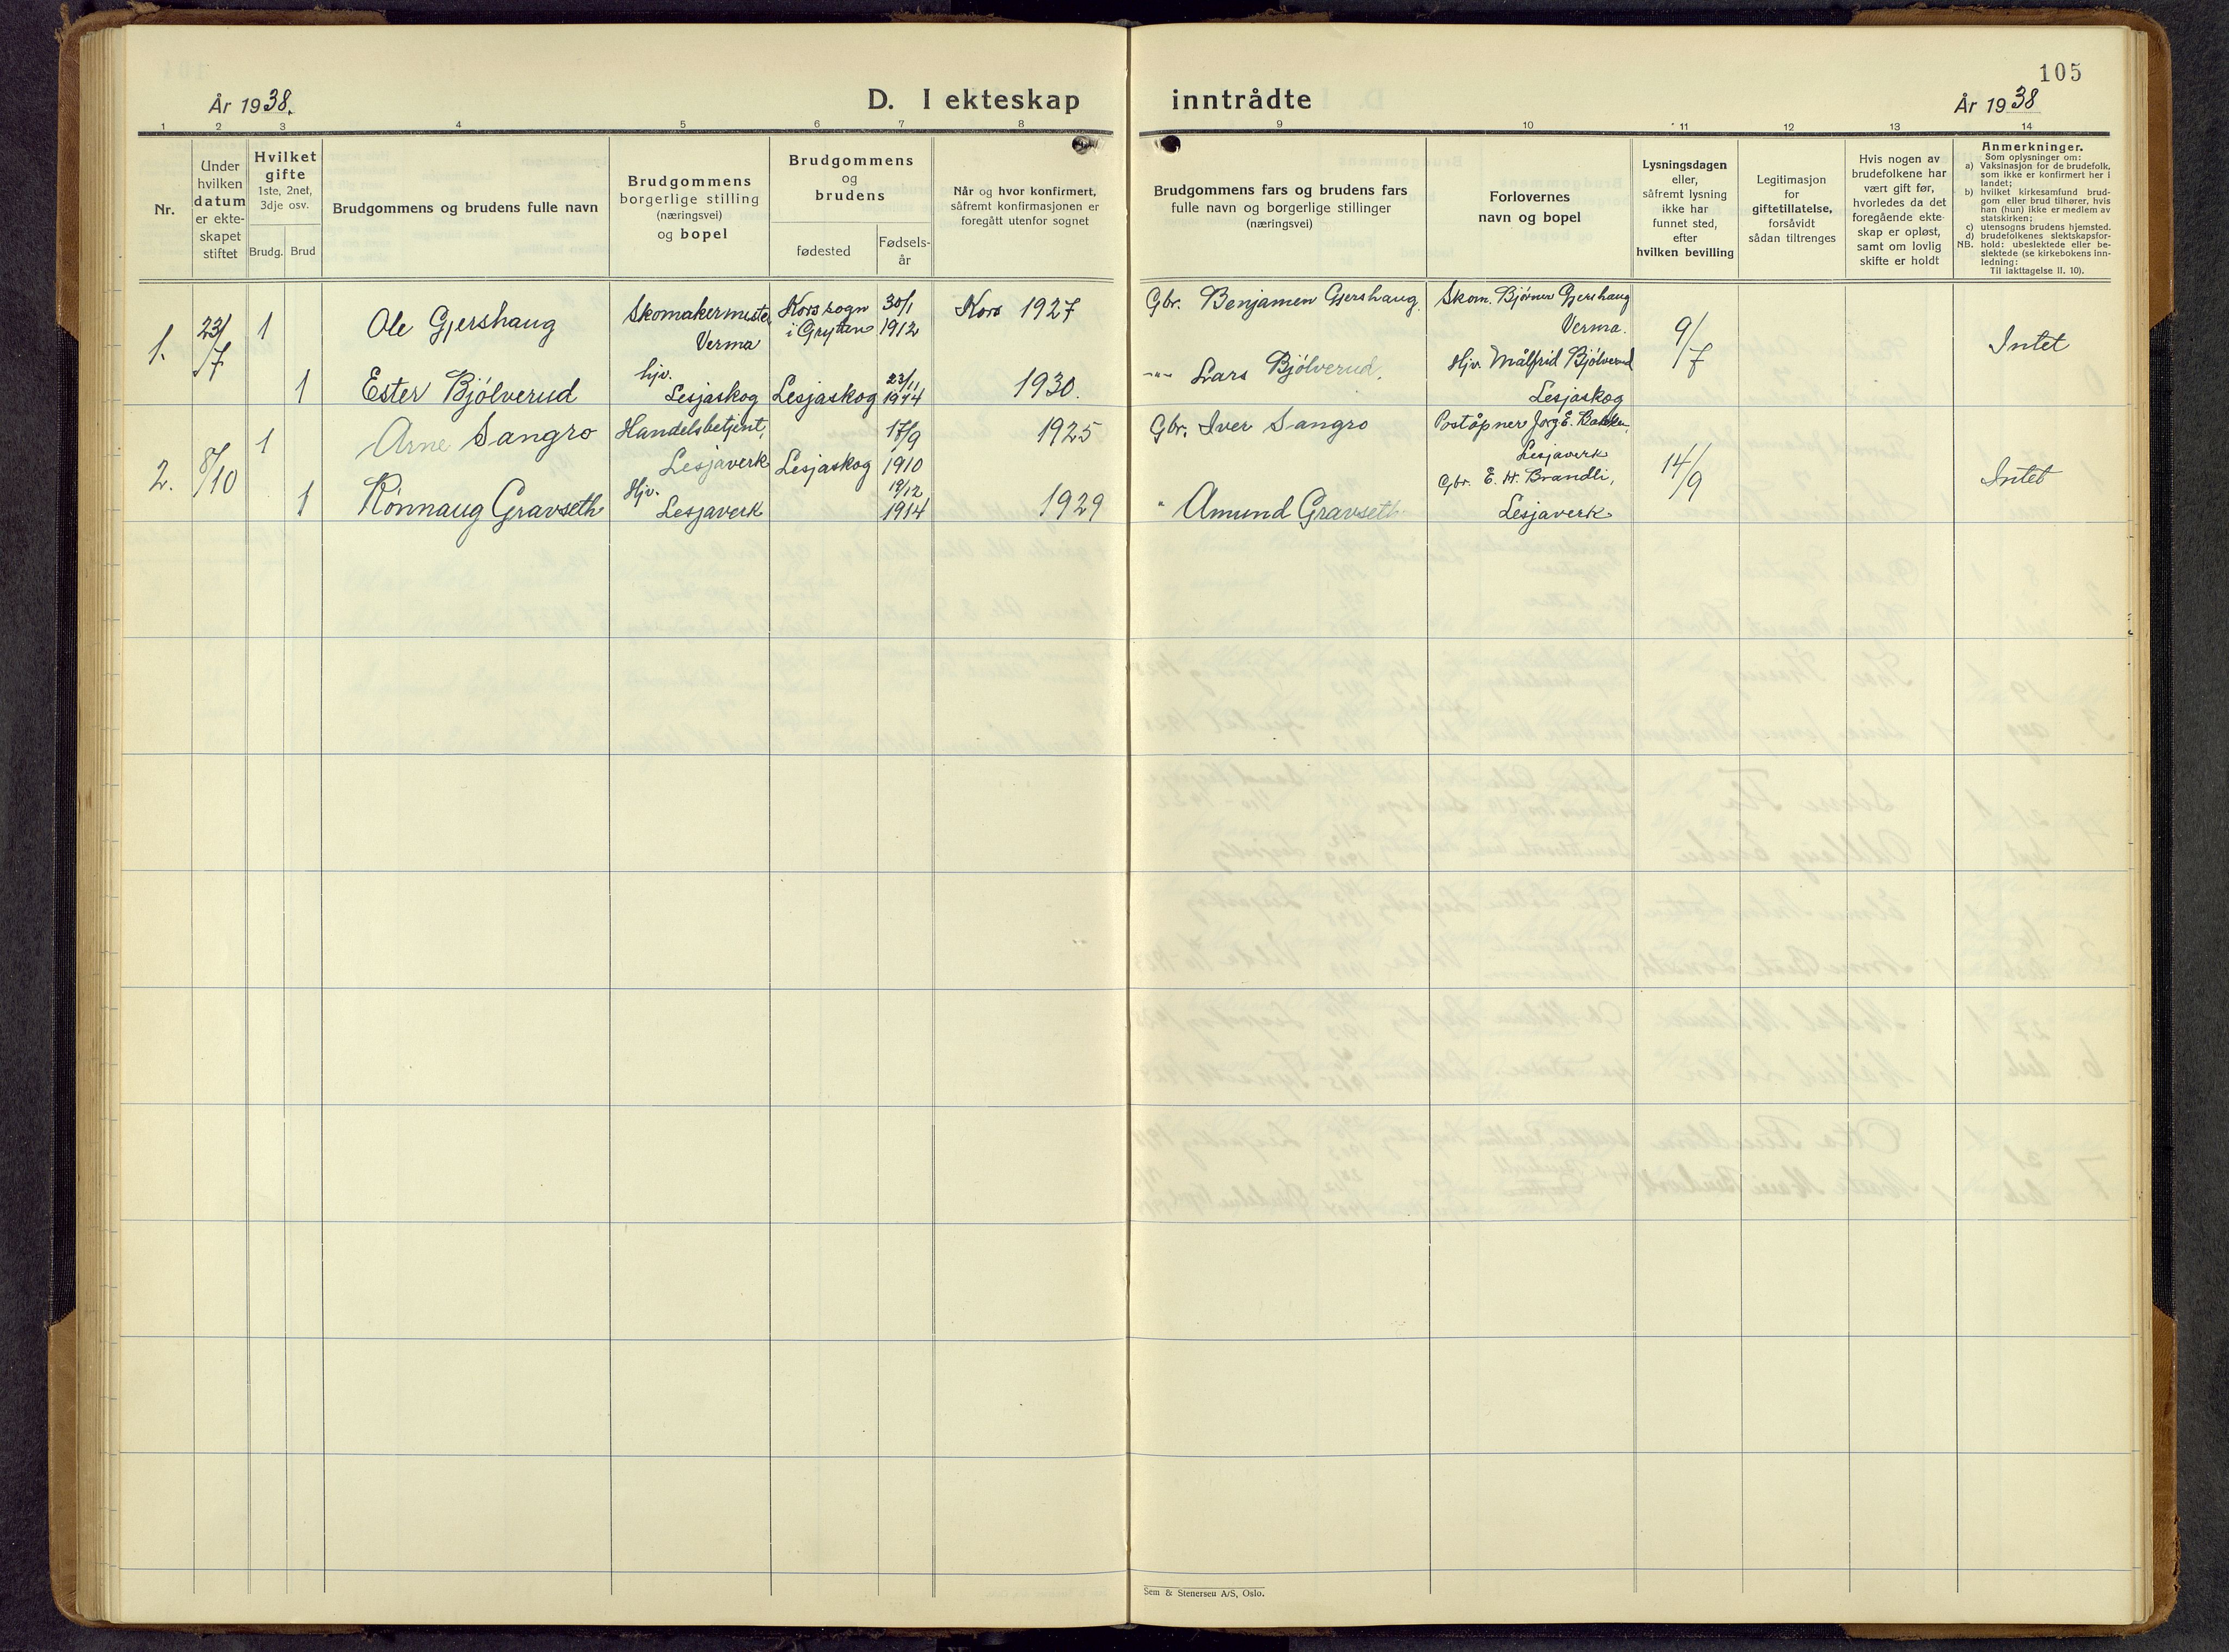 105
År 1938.
D. I ekteskap inntrådte
År 1938
1 2 3 4 5 6 7 8 9 10 11 12 13 14
Nr.
Under
hvilken
datum
er ekte-
skapet
stiftet
Hvilket
gifte
1ste, 2net,
3dje osv.
Brudg. Brud
Brudgommens og brudens fulle navn
Brudgommens
borgerlige stilling
(næringsvei)
og bopel
Brudgommens
og
brudens
fødested
Fødsels-
år
Når og hvor konfirmert,
såfremt konfirmasjonen er
foregått utenfor sognet
Brudgommens fars og brudens fars
fulle navn og borgerlige stillinger
(næringsvei)
Forlovernes
navn og bopel
Lysningsdagen
eller,
såfremt lysning
ikke har
funnet sted,
efter
hvilken bevilling
Legitimasjon
for
giftetillatelse,
forsåvidt
sådan tiltrenges
Hvis nogen av
brudefolkene har
vært gift før,
hvorledes da det
foregående ekte-
skap er opløst,
samt om lovlig
skifte er holdt
Anmerkninger.
Som oplysninger om:
a) Vaksinasjon for de brudefolk,
som ikke er konfirmert her i
landet;
b) hvilket kirkesamfund brud-
gom eller brud tilhører, hvis
han (hun) ikke er medlem av
statskirken;
c) utensogns brudens hjemsted.
d) brudefolkenes slektskapsfor-
NB. hold: ubeslektede eller be-
slektede (se kirkebokens inn-
ledning:
Til iakttagelse II. 10).
1. 23/7 1 Ole Gjershaug
Skomakermester
Verma
Kors sogn
i Grytten
30/1
1912
Kors 1927
Gbr. Benjamen Gjershaug.
Skom. Bjørner Gjershaug
Verma.
9/7
Intet
1 Ester Bjölverud
hjv.
Lesjaskog
Lesjaskog
23/11
1914
1930.
-"- Lars Bjölverud.
Hjv. Målfrid Bjölverud
Lesjaskog
2. 8/10 1 Arne Sangro
Handelsbetjent,
Lesjaverk
Lesjaskog
17/9
1910
1925
Gbr. Iver Sangro
Poståpner Jorg E.
Lesjaverk
14/9
Intet
1 Rönnaug Gravseth
Hjv.
Lesjaverk
12/12
1914
1929
" Amund Gravseth
Gbr. E. H. Brandli,
Lesjaverk
Sem & Stenersen A/S, Oslo.